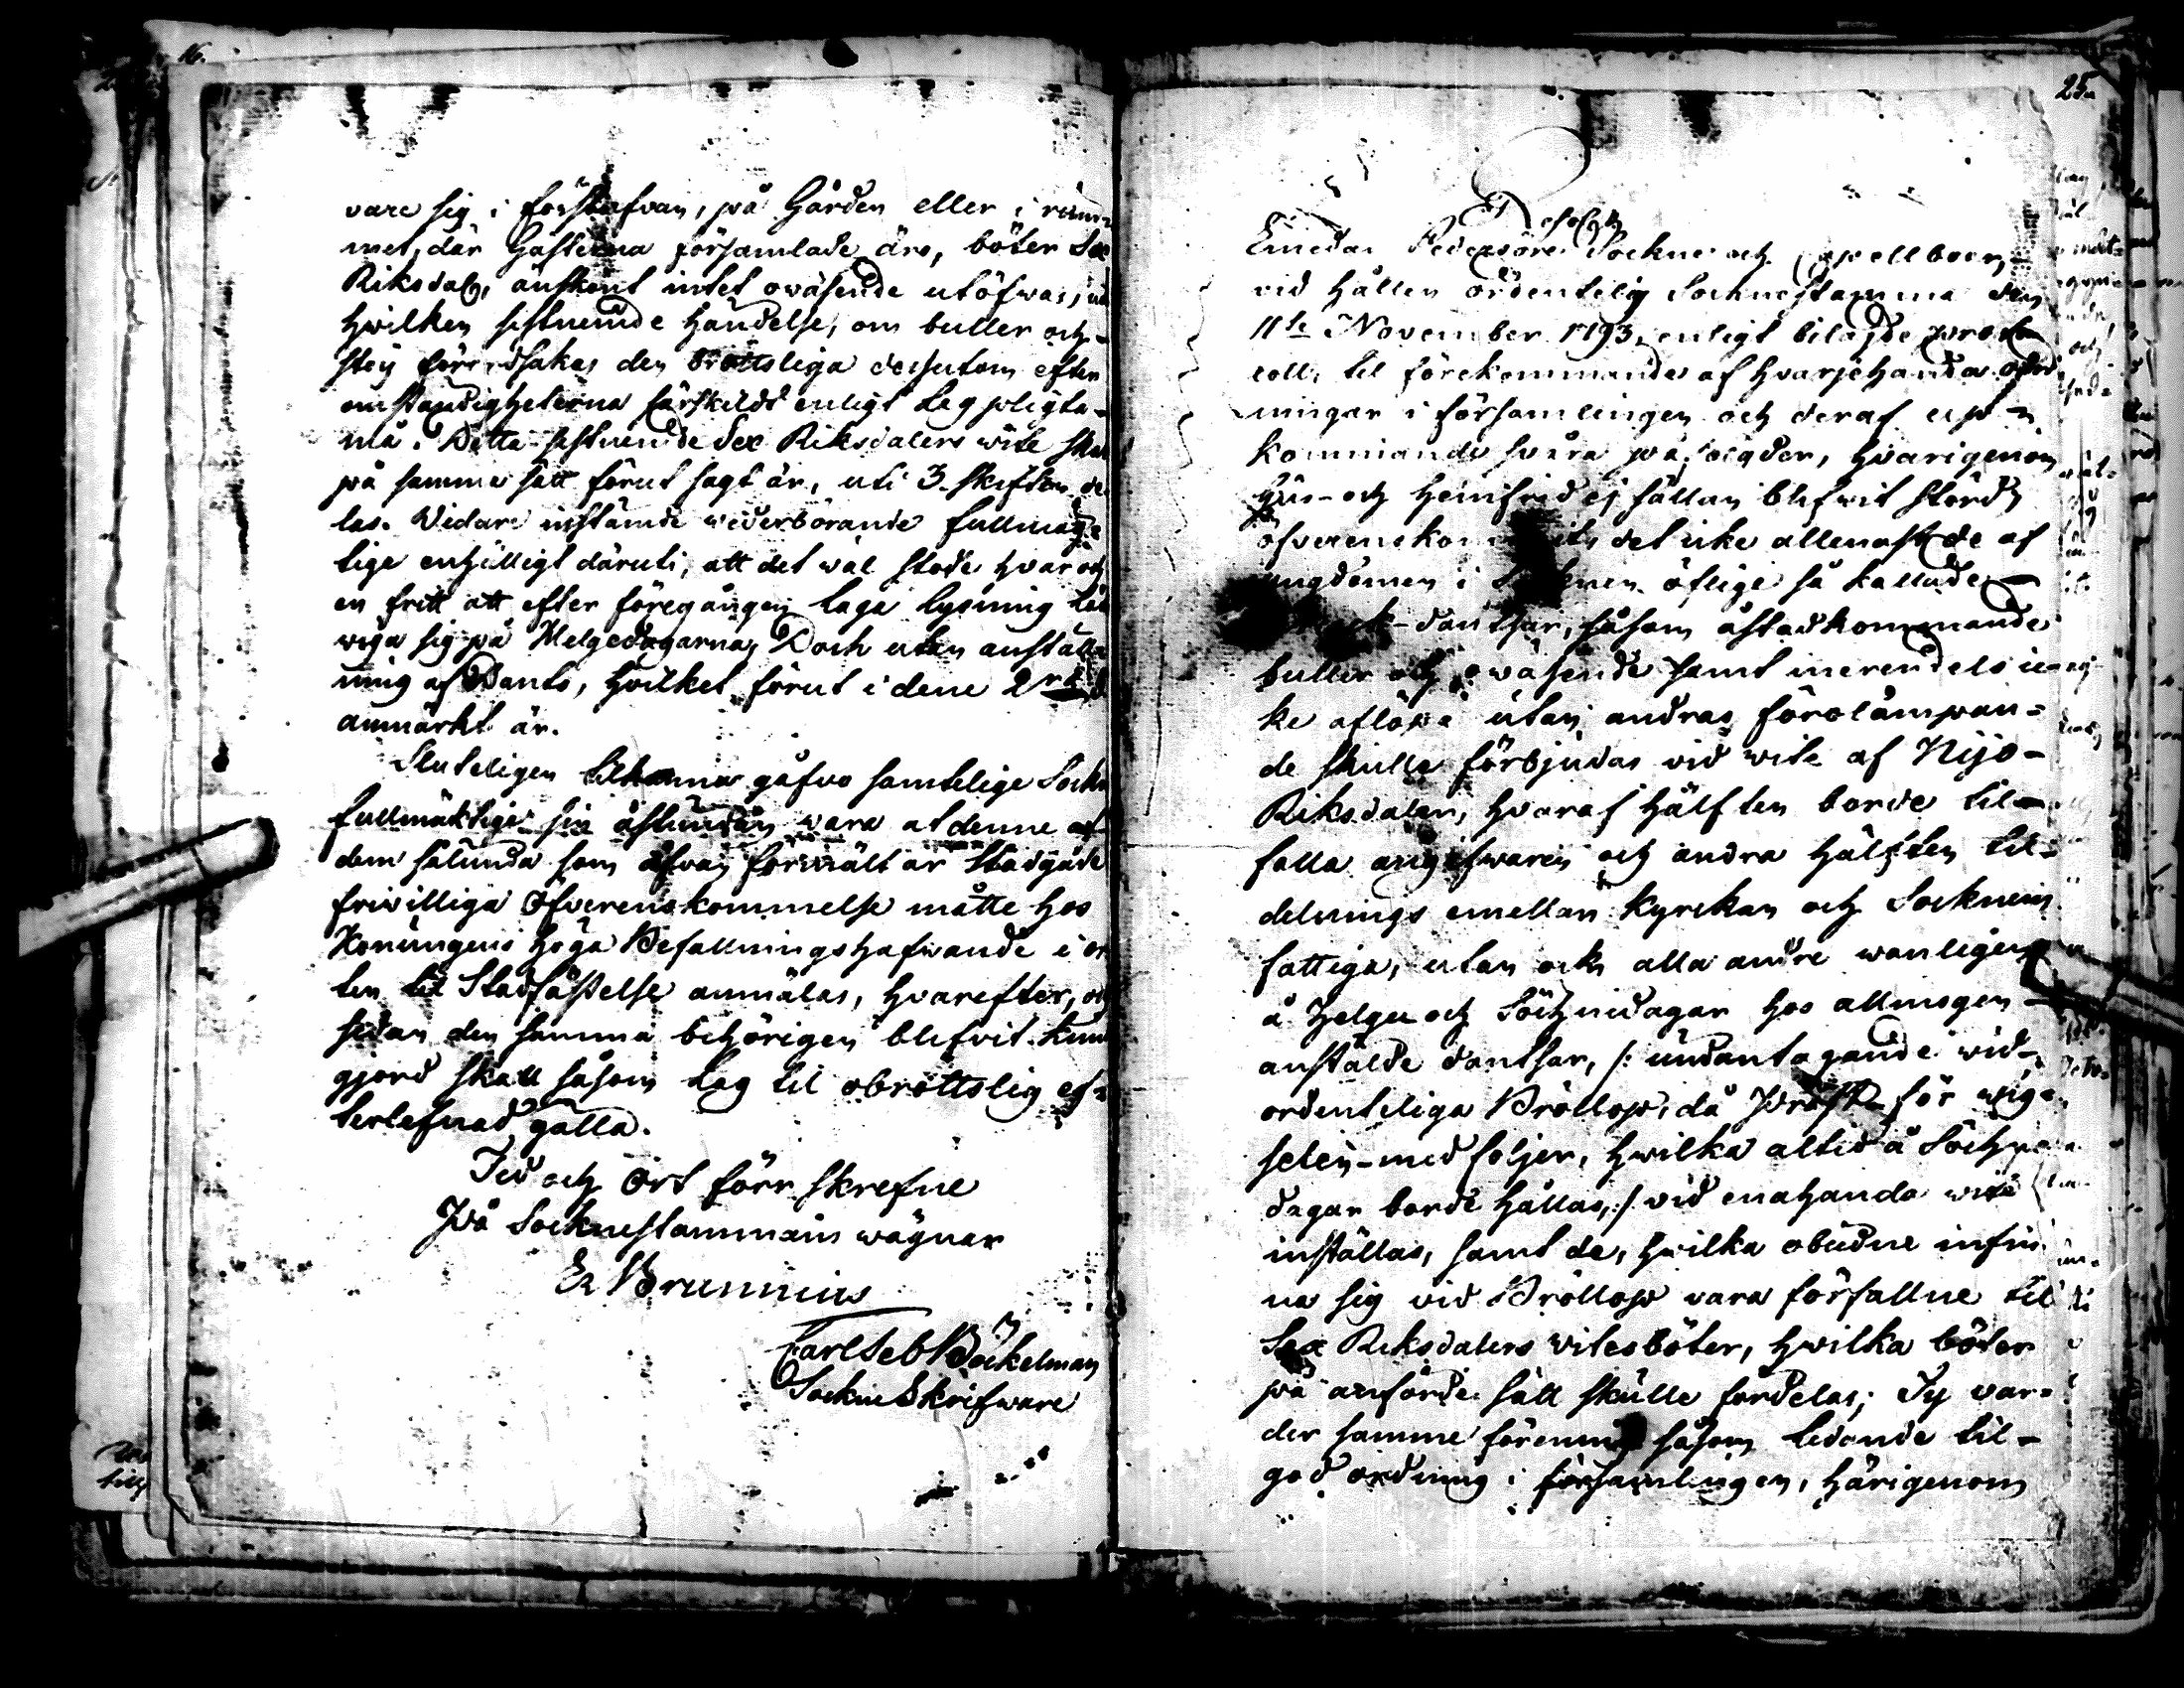 16.
vare sig i förstufvan, på Gården eller i rum-
met, där Gästerna församlade äro, böter Sex
Riksdaler, anskönt intet oväsende utöfwas, vid
hvilken sistnemnde händelse, om buller och
stoj förordsakas den brottsliga dessutom efter
omständigheterna särskildt enligt Lag pligta
må. Detta sistnemnde Sex Riksdalers wite skal
på samma sätt förut sagt är, uti 3. skiften de-
las. Vidare instämde wederbörande fullmäg-
tige enhälligt däruti, att det wäl stode hvar och
en fritt att efter föregången laga lysning låta
wiga sig på Helgedagarna, Doch utan anställ-
ning af Dants, hvilket förut i dene 2
anmärkt är.
Sluteligen tilkänna gåfvo samtelige Sockne
fullmäktige sin åstundan wara at denne af
dem sålunda som ofvan förmält är Stadgade
friwilliga Öfverenskommelse måtte hos
Konungens höga Befallningshafwande i or-
ten til Stadfästelse anmälas, hvarefter, och
sedan den samma behörigen blifvit kun-
gjord skall såsom Lag til obrottslig ef-
terlefnad gälla.
Tid och Ort förr skrefne
På Socknestämmans wägnar
Er Brunnius
Carl Seb Böckelman
SockneSkrifware
25.
Emedan Pedersöre Sockne och Capellboer
vid hållen ordentelig Socknestämma den
11te November 1793, enligt bilagde proto-
coll, til förekommande af hvarjehanda oord-
ningar i församlingen och deraf up-
kommande svåra påfölgder, hvarigenom
hus- och hemfrid ej sällan blifwit störd
öfverenskommit, det icke allenast de af
ungdomen i Socknen öflige så kallade
dantsar, såsom åstadkommande
buller och oväsende samt merendels ic-
ke aflöpa utan andras förolämpan-
de skulle förbjudas vid wite af Tijo
Riksdaler, hvaraf hälften borde til-
falla angifwaren och andra hälften til
delnings emellan Kyrckan och Socknens
fattiga, utan ock alla andre wanligen
å Helge och Söchnedagar hos allmogen
anstälde dantsar, /: undantagande vid
ordenteliga Bröllop, då Präst för wig-
selen medföljer, hwilka altid å Söchne
dagar borde hållas, :/ vid enahanda wite
inställas, samt de, hwilka obudne infin-
na sig vid Bröllop vara förfallne til
Sex Riksdalers vitesböter, hwilka böter
på anförde sätt skulle fördelas; Ty var-
der samme förening såsom ledande til
god ordning i församlingen, härigenom